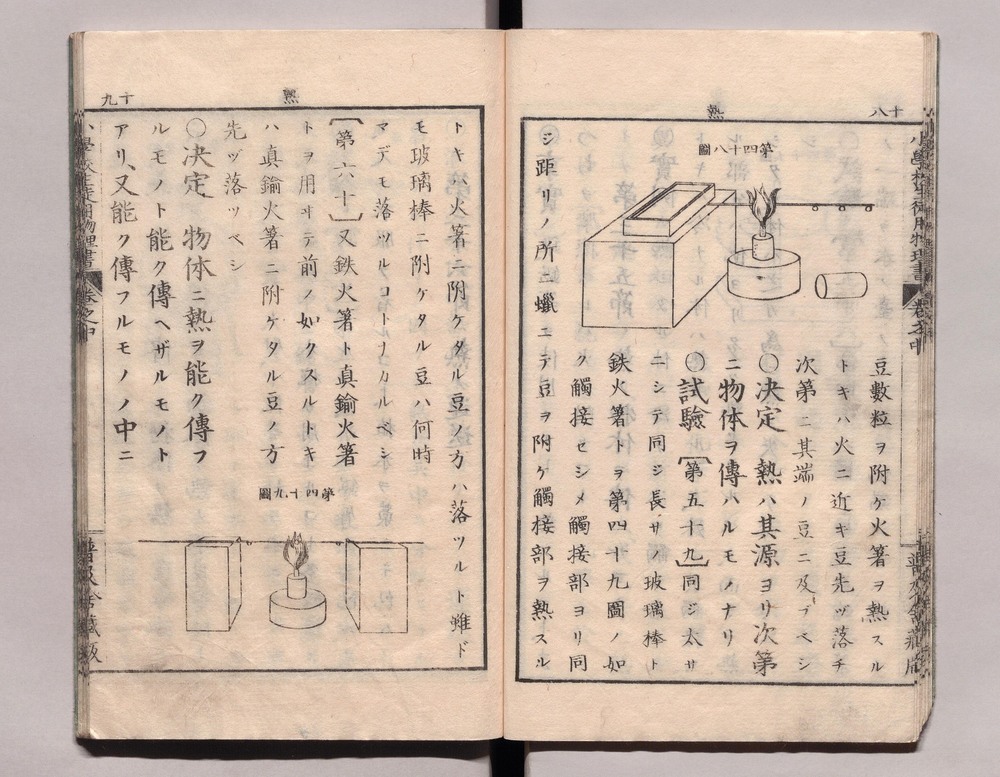 十八
熱
第四十八圖
豆數粒ヲ附ケ火箸ヲ熱スル
トキハ火ニ近キ豆先ヅ落チ
次第ニ其端ノ豆ニ及ブベシ
〇決定 熱ハ其源ヨリ次第
ニ物体ヲ傳ハルモノナリ
〇試驗[第五十九]同ジ太サ
ニシテ同ジ長サノ玻璃棒ト
鉄火箸トヲ第四十九圖ノ如
ク觸接セシメ觸接部ヨリ同
ジ距リノ所ニ蠟ニテ豆ヲ附ケ觸接部ヲ熱スル
十九
熱
トキハ火箸ニ附ケタル豆ノ方ハ落ツルト雖ド
モ玻璃棒ニ附ケタル豆ハ何時
マデモ落ツルコトナカルベシ
[第六十]又鉄火箸ト真鍮火箸
トヲ用ヰテ前ノ如クスルトキ
ハ真鍮火箸ニ附ケタル豆ノ方
先ヅ落ツベシ
〇決定 物体ニ熱ヲ能ク傳フ
ルモノト能ク傳ヘザルモノト
アリ、又能ク傳フルモノノ中ニ
第四十九圖
卷之中